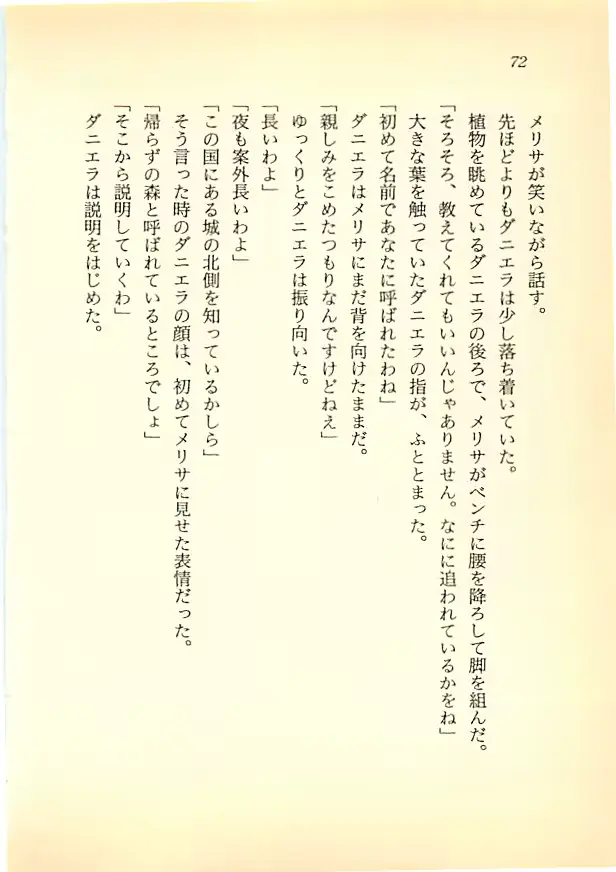 72
メリサが笑いながら話す。
先ほどよりもダニエラは少し落ち着いていた。
植物を眺めているダニエラの後ろで、メリサがベンチに腰を降ろして脚を組んだ。
「そろそろ、教えてくれてもいいんじゃありません。なにに追われているかをね」
大きな葉を触っていたダニエラの指が、ふととまった。
「初めて名前であなたに呼ばれたわね」
ダニエラはメリサにまだ背を向けたままだ。
「親しみをこめたつもりなんですけどねえ」
ゆっくりとダニエラは振り向いた。
「長いわよ」
「夜も案外長いわよ」
「この国にある城の北側を知っているかしら」
そう言った時のダニエラの顔は、初めてメリサに見せた表情だった。
「帰らずの森と呼ばれているところでしょ」
「そこから説明していくわ」
ダニエラは説明をはじめた。